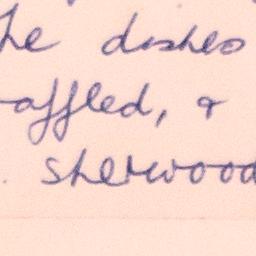 he dishes
affled, &
. Sherwood